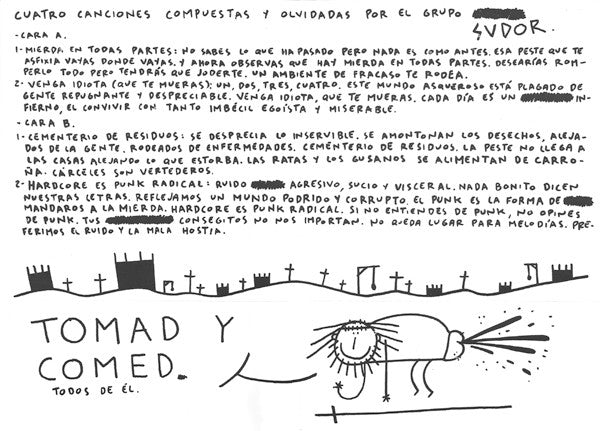 CUATRO CANCIONES COMPUESTAS Y OLVIDADAS POR EL GRUPO
SUDOR.
-CARA A.
1-MIERDA EN TODAS PARTES: NO SABES LO QUE HA PASADO PERO NADA ES COMO ANTES. ESA PESTE QUE TE
ASFIXIA VAYAS DONDE VAYAS. Y AHORA OBSERVAS QUE HAY MIERDA EN TODAS PARTES. DESEARÍAS ROM-
PERLO TODO PERO TENDRÁS QUE JODERTE. UN AMBIENTE DE FRACASO TE RODÉA.
2-VENGA IDIOTA (QUE TE MUERAS): UN, DOS, TRES, CUATRO. ESTE MUNDO ASQUEROSO ESTÁ PLAGADO DE
GENTE REPUGNANTE Y DESPRECIABLE. VENGA IDIOTA, QUE TE MUERAS. CADA DÍA ES UN IN-
FIERNO, EL CONVIVIR CON TANTO IMBÉCIL EGOÍSTA Y MISERABLE.
-CARA B.
1-CEMENTERIO DE RESIDUOS: SE DESPRECIA LO INSERVIBLE. SE AMONTONAN LOS DESECHOS, ALEJA-
DOS DE LA GENTE. RODEADOS DE ENFERMEDADES. CEMENTERIO DE RESIDUOS. LA PESTE NO LLEGA A
LAS CASAS ALEJANDO LO QUE ESTORBA. LAS RATAS Y LOS GUSANOS SE ALIMENTAN DE CARRO-
ÑA. CÁRCELES SON VERTEDEROS.
2-HARDCORE ES PUNK RADICAL: RUIDO AGRESIVO, SUCIO Y VISCERAL. NADA BONITO DICEN
NUESTRAS LETRAS. REFLEJAMOS UN MUNDO PODRIDO Y CORRUPTO. EL PUNK ES LA FORMA DE
MANDAROS A LA MIERDA. HARDCORE ES PUNK RADICAL. SI NO ENTIENDES DE PUNK, NO OPINES
DE PUNK. TUS CONSEGITOS NO NOS IMPORTAN. NO QUEDA LUGAR PARA MELODÍAS. PRE-
FERIMOS EL RUIDO Y LA MALA HOSTIA.
TOMAD Y
COMED.
TODOS DE ÉL.